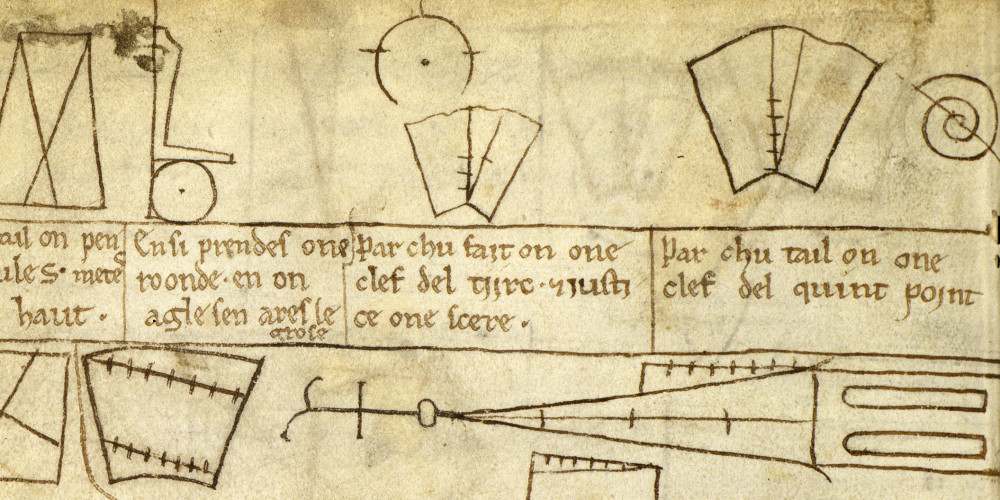 tail on pen
ules · mete
haut ·
Ensi prendes one
roonde · en on
agle sen ares le
grose
Par chu fait on one
clef del tiirc · & justi
ce one scere ·
Par chu tail on one
clef del quint point